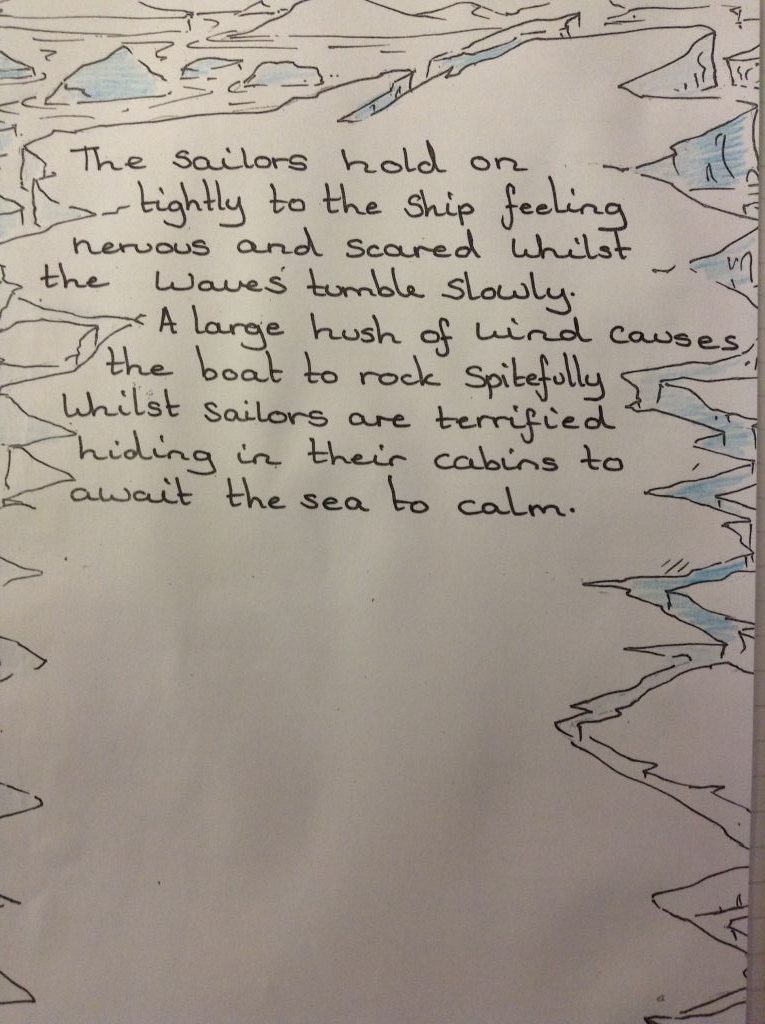 The sailors hold on
tightly to the ship feeling
nervous and scared whilst
the waves tumble slowly.
A large hush of wind causes
the boat to rock spitefully
whilst sailors are terrified
hiding in their cabins to
await the sea to calm.